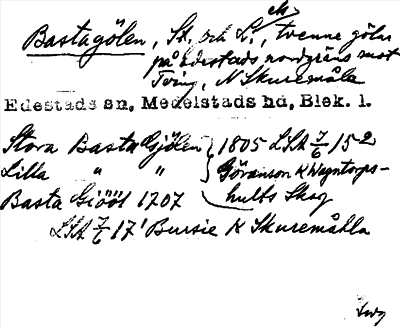 Bastagölen, St. och L., tvenne gölar
på Edestads nordgräns mot
Tving, N Skuremåla
Edestads sn, Medelstads hd, Blek. l.
Stora Basta Gjölen } 1805 LSA 7/6 15²
Lilla " " } Göranson K Wängtorps-
Basta Giööl 1707 hults Skog
LSA 7/6 17¹ Bursie K Skuremåhla